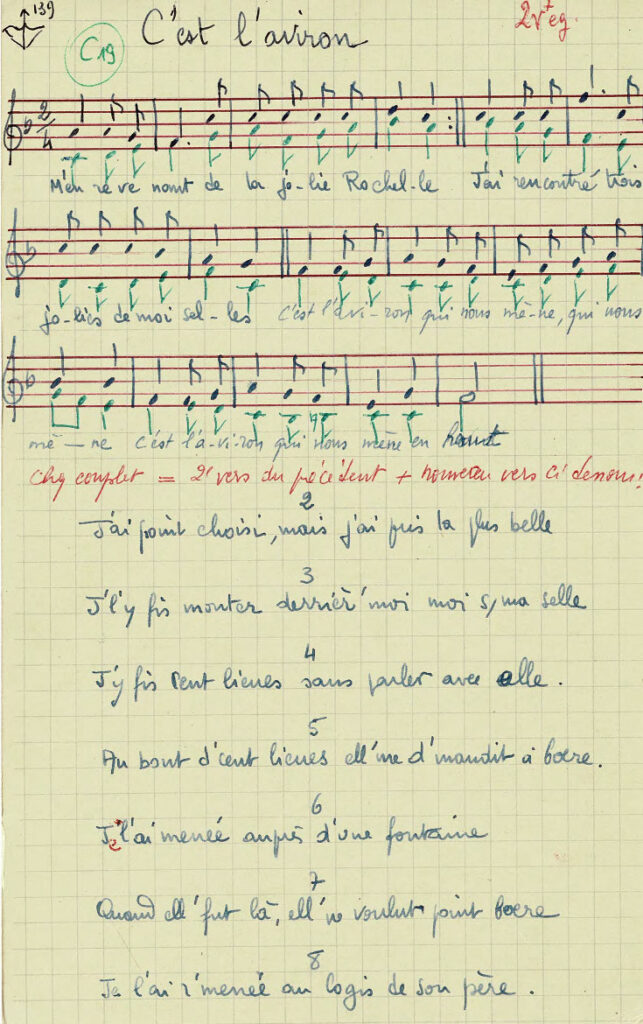 139
2 v eg.
C19
C'est l'aviron
2/4
M'en re ve nant de la jo-lie Rochel-le J'ai rencontré trois
jo-lies de moi sel-les C'est l'avi-ron qui nous mè-ne, qui nous
mè-ne C'est l'a-vi-ron qui nous mène en haut
Chq couplet = 2e vers du précédent + nouveau vers ci dessous!
2
J'ai point choisi, mais j'ai pris la plus belle
3
J'l'y fis monter derrièr' moi moi s/ma selle
4
J'y fis cent lieues sans parler avec elle.
5
Au bout d'cent lieues ell' me d'mandit à boere.
6
Je l'ai menée auprès d'une fontaine
7
Quand ell' fut là, ell' n' voulut point boere
8
Je l'ai r'menée au logis de son père.